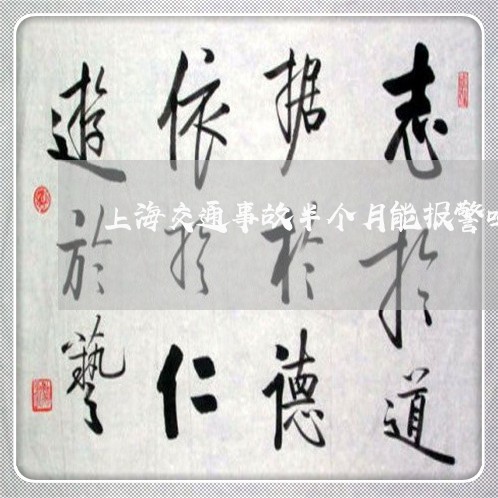 志扵道
据於德
依扵仁
遊於藝
上海交通事故半个月能报警